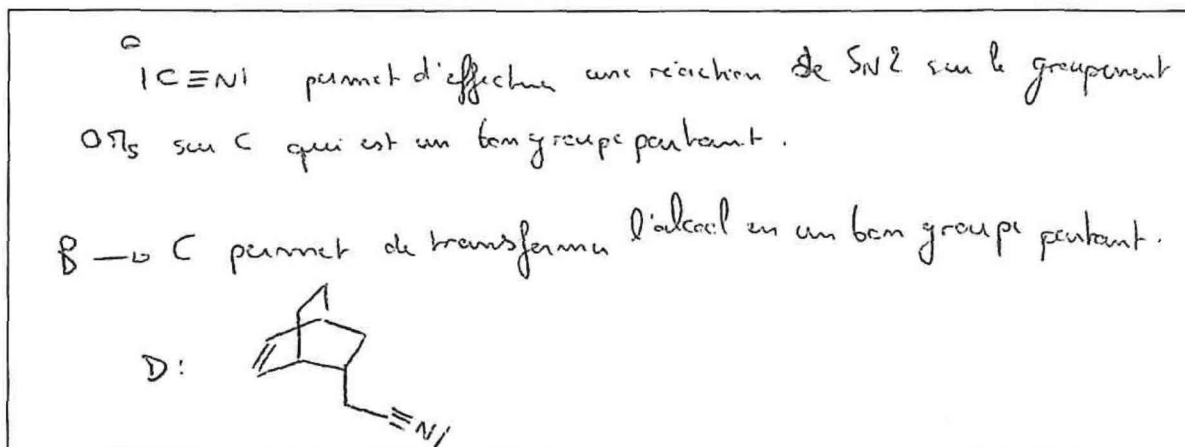 ⊖
|C≡N| permet d'effectuer une réaction de SN2 sur le groupement
OMs sur C qui est un bon groupe partant.
B → C permet de transformer l'alcool en un bon groupe partant.
D:
≡N|